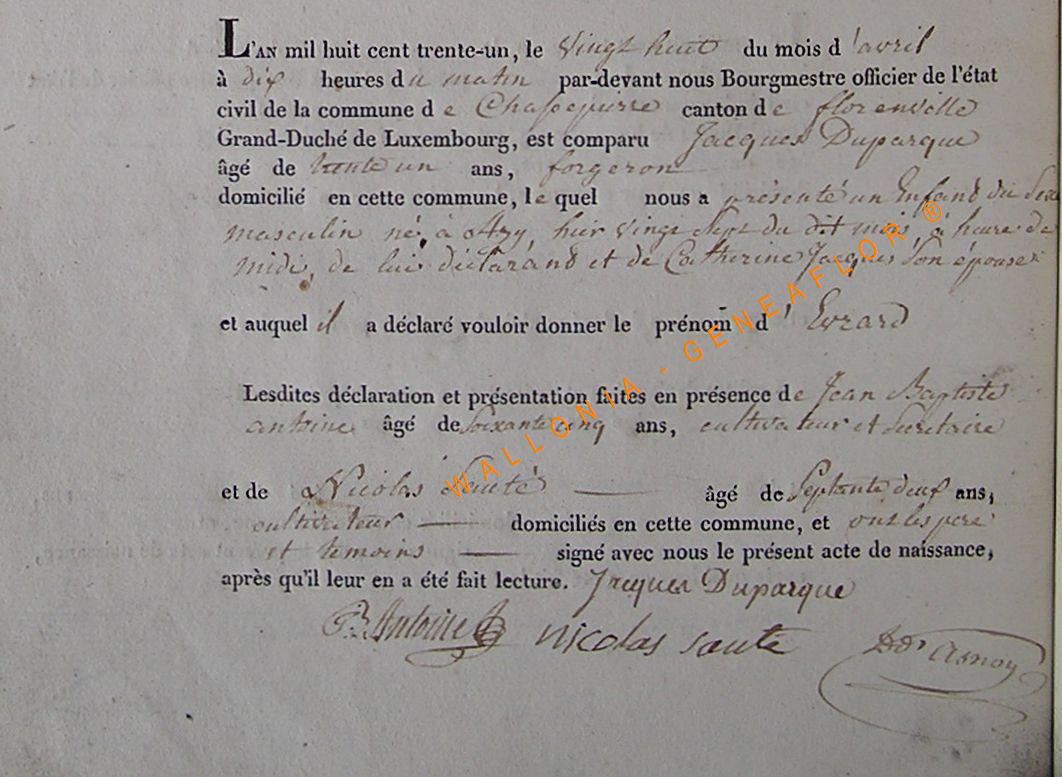 L'AN mil huit cent trente-un, le vingt huit du mois d'avril
à dix heures du matin par-devant nous Bourgmestre officier de l'état
civil de la commune de Chassepierre canton de florenville
Grand-Duché de Luxembourg, est comparu Jacques Duparque
âgé de trente un ans, forgeron
domicilié en cette commune, le quel nous a présenté un Enfand du Sexe
masculin né, à Azy, hier vingt Sept du dit mois à heure de
midi, de lui déclarand et de Catherine Jacques Son épouse
et auquel il a déclaré vouloir donner le prénom d'Evrard
Lesdites déclaration et présentation faites en présence de Jean Baptiste
antoine âgé de Soixante cinq ans, cultivateur et Secretaire
et de Nicolas Sauté âgé de Septante deuf ans,
cultivateur domiciliés en cette commune, et ont les pere
et temoins signé avec nous le présent acte de naissance,
après qu'il leur en a été fait lecture. Jacques Duparque
Antoine nicolas saute
WALLONIA - GENEAFLOR ®